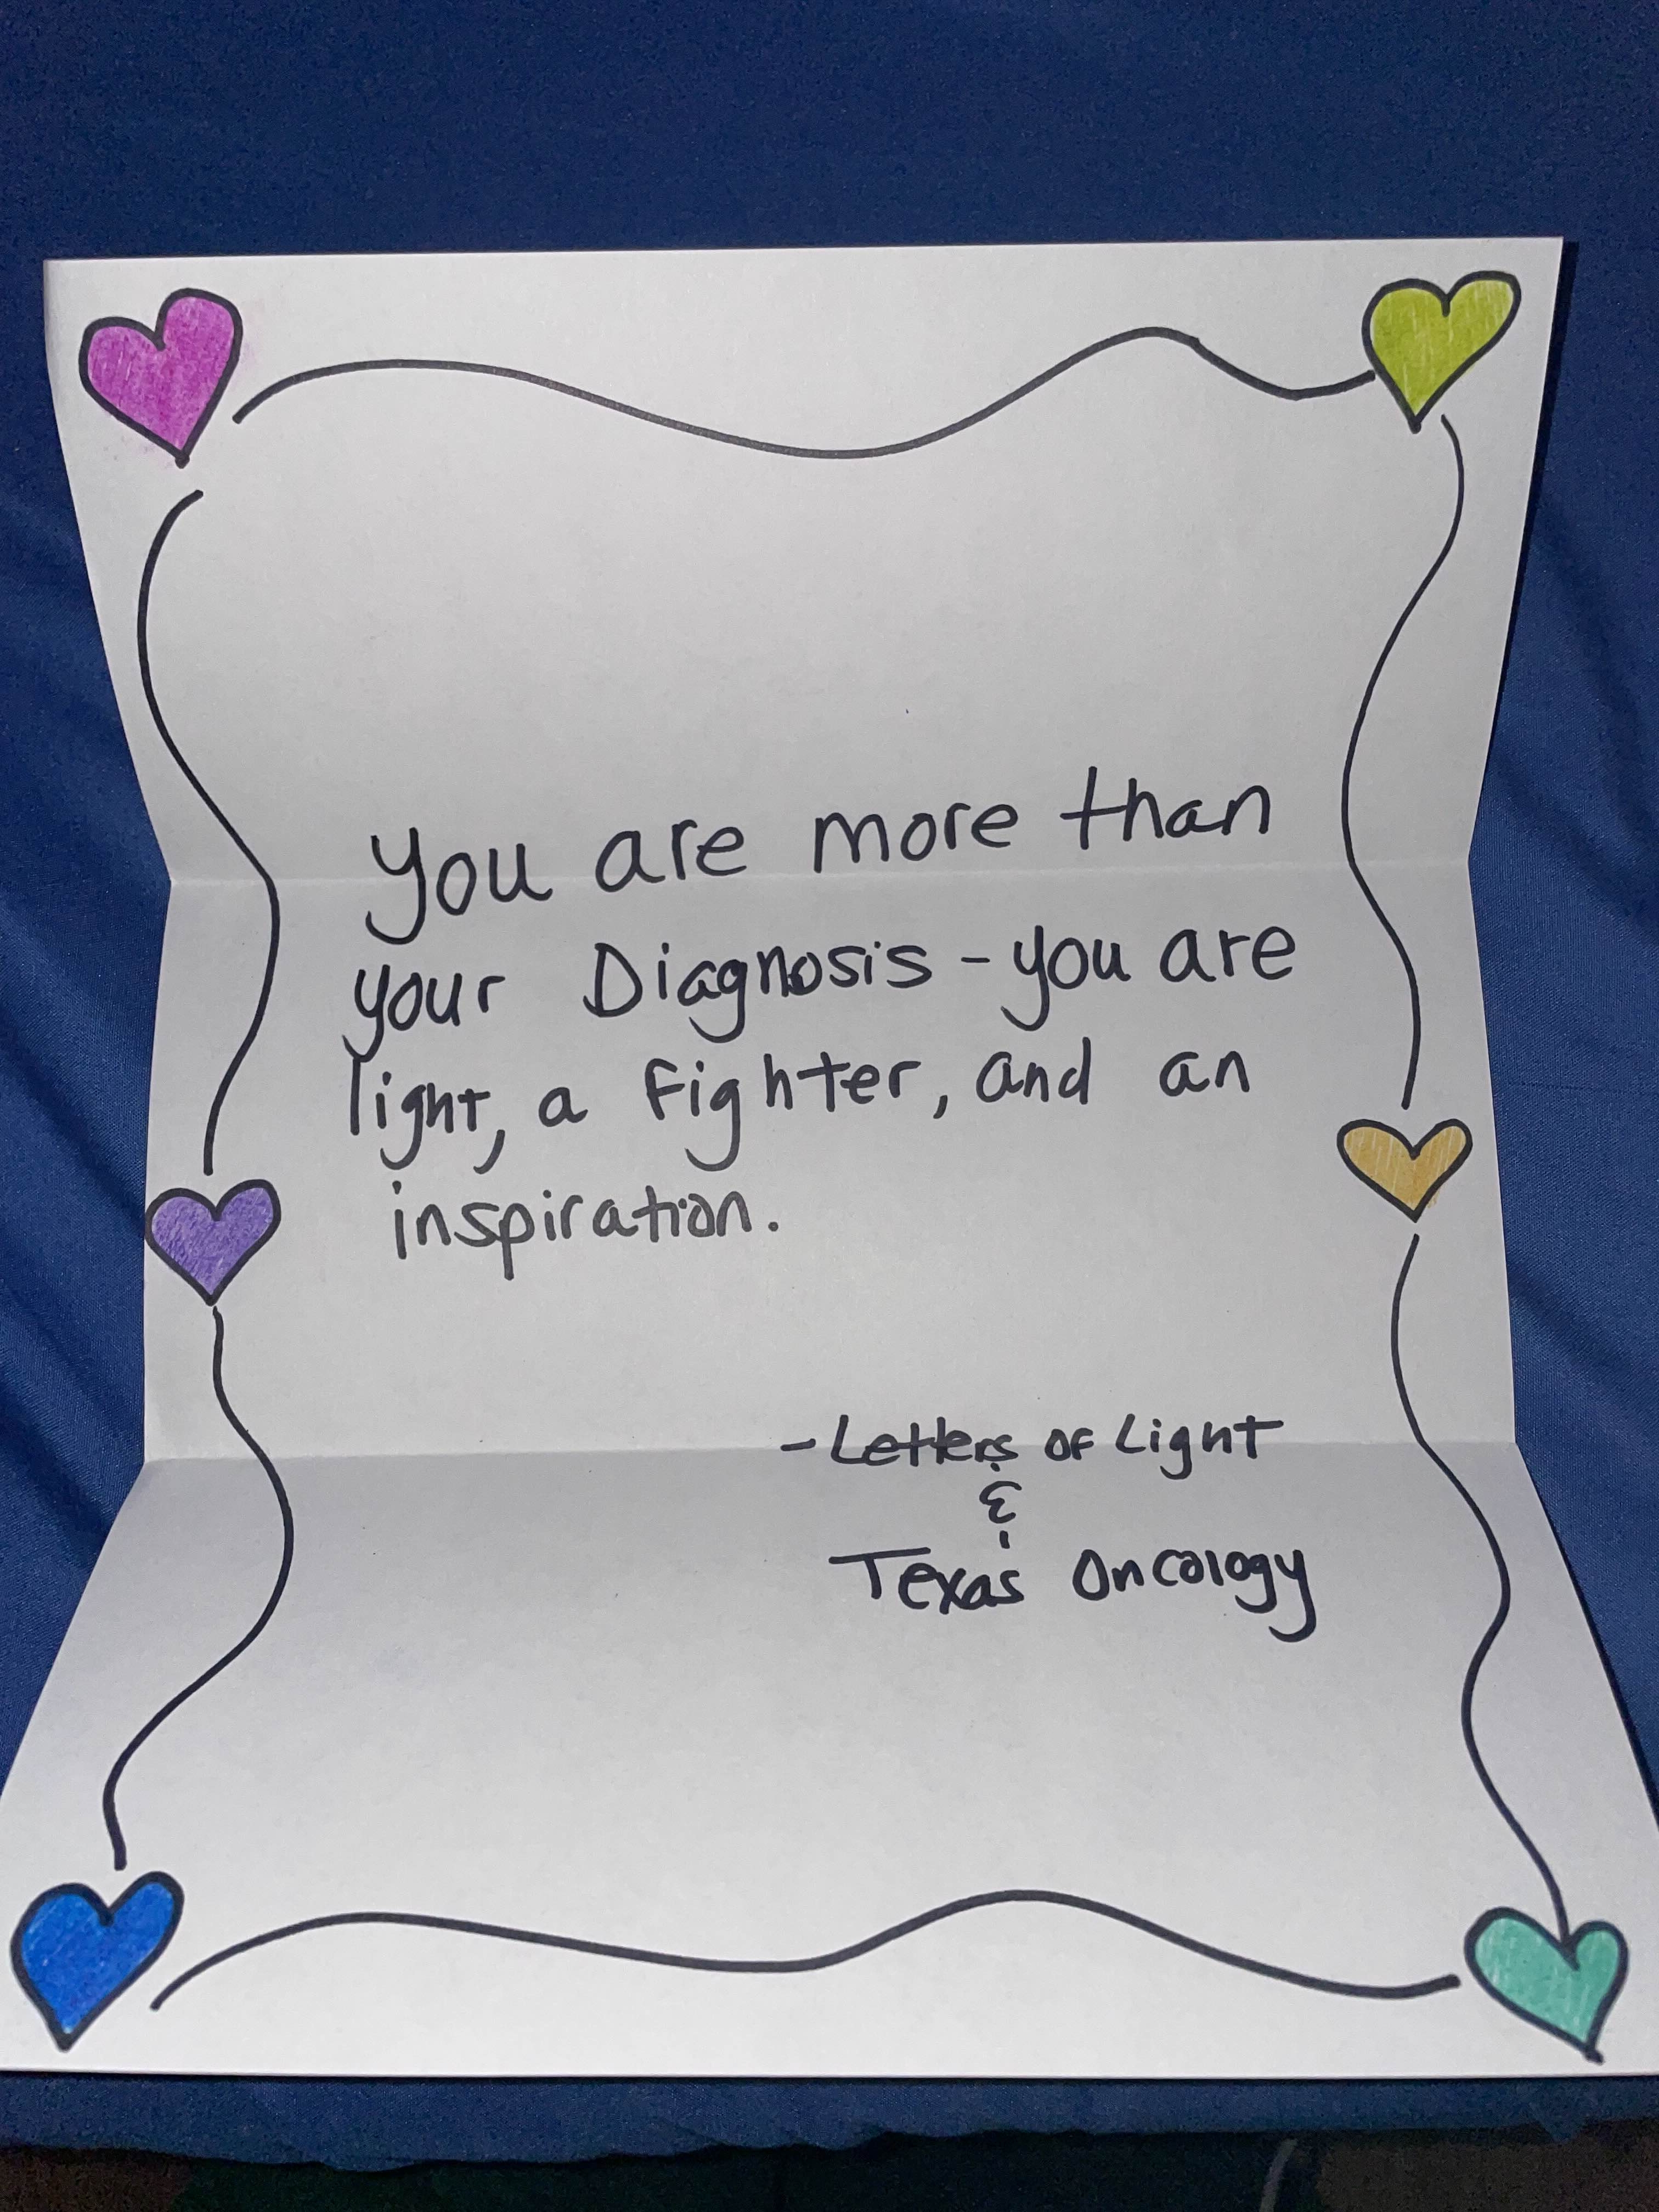 you are more than
your Diagnosis - you are
light, a fighter, and an
inspiration.
- Letters of Light
&
Texas Oncology